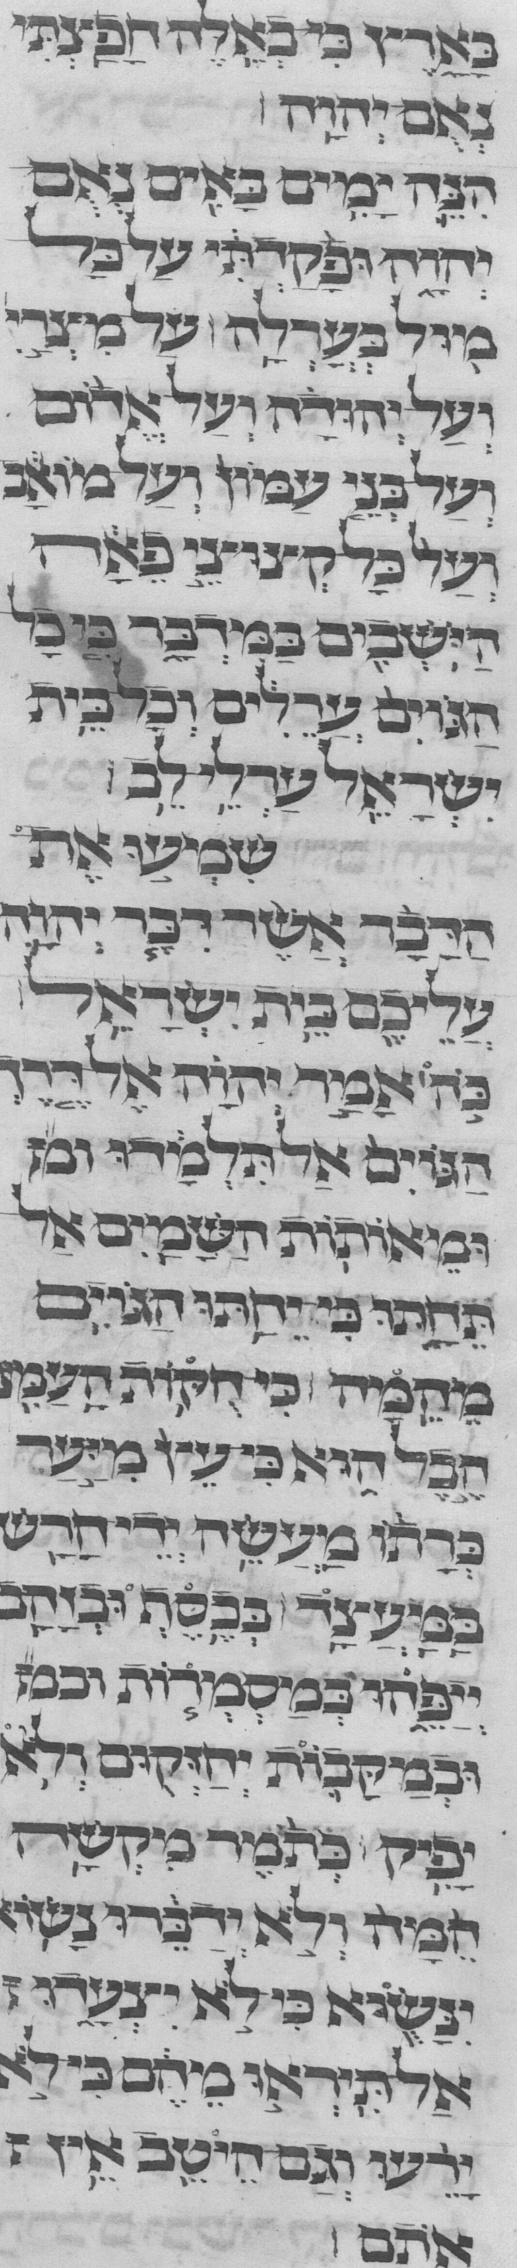 בָּאָרֶץ כִּי בְאֵלֶּה חָפַצְתִּי
נְאֻם יְהוָה׃
הִנֵּה יָמִים בָּאִים נְאֻם
יְהוָה וּפָקַדְתִּי עַל כָּל
מוּל בְּעָרְלָה׃ עַל מִצְרַיִ
וְעַל יְהוּדָה וְעַל אֱדוֹם
וְעַל בְּנֵי עַמּוֹן וְעַל מוֹאָב
וְעַל כָּל קְצוּצֵי פֵאָה
הַיֹּשְׁבִים בַּמִּדְבָּר כִּי כָל
הַגּוֹיִם עֲרֵלִים וְכָל בֵּית
יִשְׂרָאֵל עַרְלֵי לֵב׃
שִׁמְעוּ אֶת
הַדָּבָר אֲשֶׁר דִּבֶּר יְהוָה
עֲלֵיכֶם בֵּית יִשְׂרָאֵל׃
כֹּה אָמַר יְהוָה אֶל דֶּרֶךְ
הַגּוֹיִם אַל תִּלְמָדוּ ומ
וּמֵאוֹתוֹת הַשָּׁמַיִם אַל
תֵּחָתּוּ כִּי יֵחַתּוּ הַגּוֹיִם
מֵהֵמָּה׃ כִּי חֻקּוֹת הָעַמִּ
הֶבֶל הוּא כִּי עֵץ מִיַּעַר
כְּרָתוֹ מַעֲשֵׂה יְדֵי חָרָשׁ
בַּמַּעֲצָד׃ בְּכֶסֶף וּבְזָהָב
יְיַפֵּהוּ בְּמַסְמְרוֹת וכמ
וּבְמַקָּבוֹת יְחַזְּקוּם וְלֹא
יָפִיק׃ כְּתֹמֶר מִקְשָׁה
הֵמָּה וְלֹא יְדַבֵּרוּ נָשׂוֹא
יִנָּשׂוּא כִּי לֹא יִצְעָדוּ
אַל תִּירְאוּ מֵהֶם כִּי לֹא
יָרֵעוּ וְגַם הֵיטֵב אֵין
אֹתָם׃